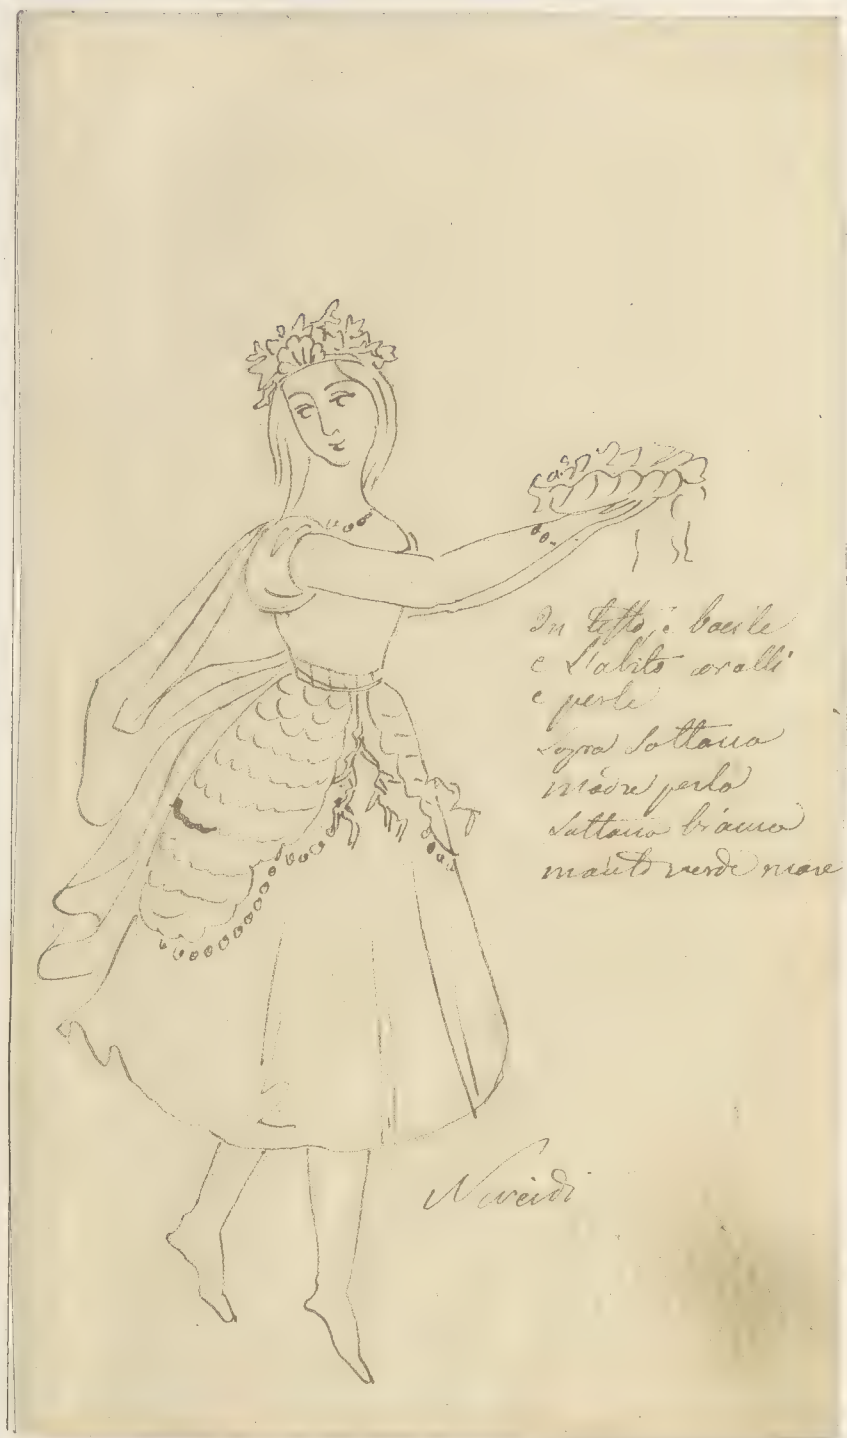 In testa, è bacile
e L'abito coralli
e perle
Sopra Sottana
madre perla
Sottana bianca
manto verde mare
Nereidi